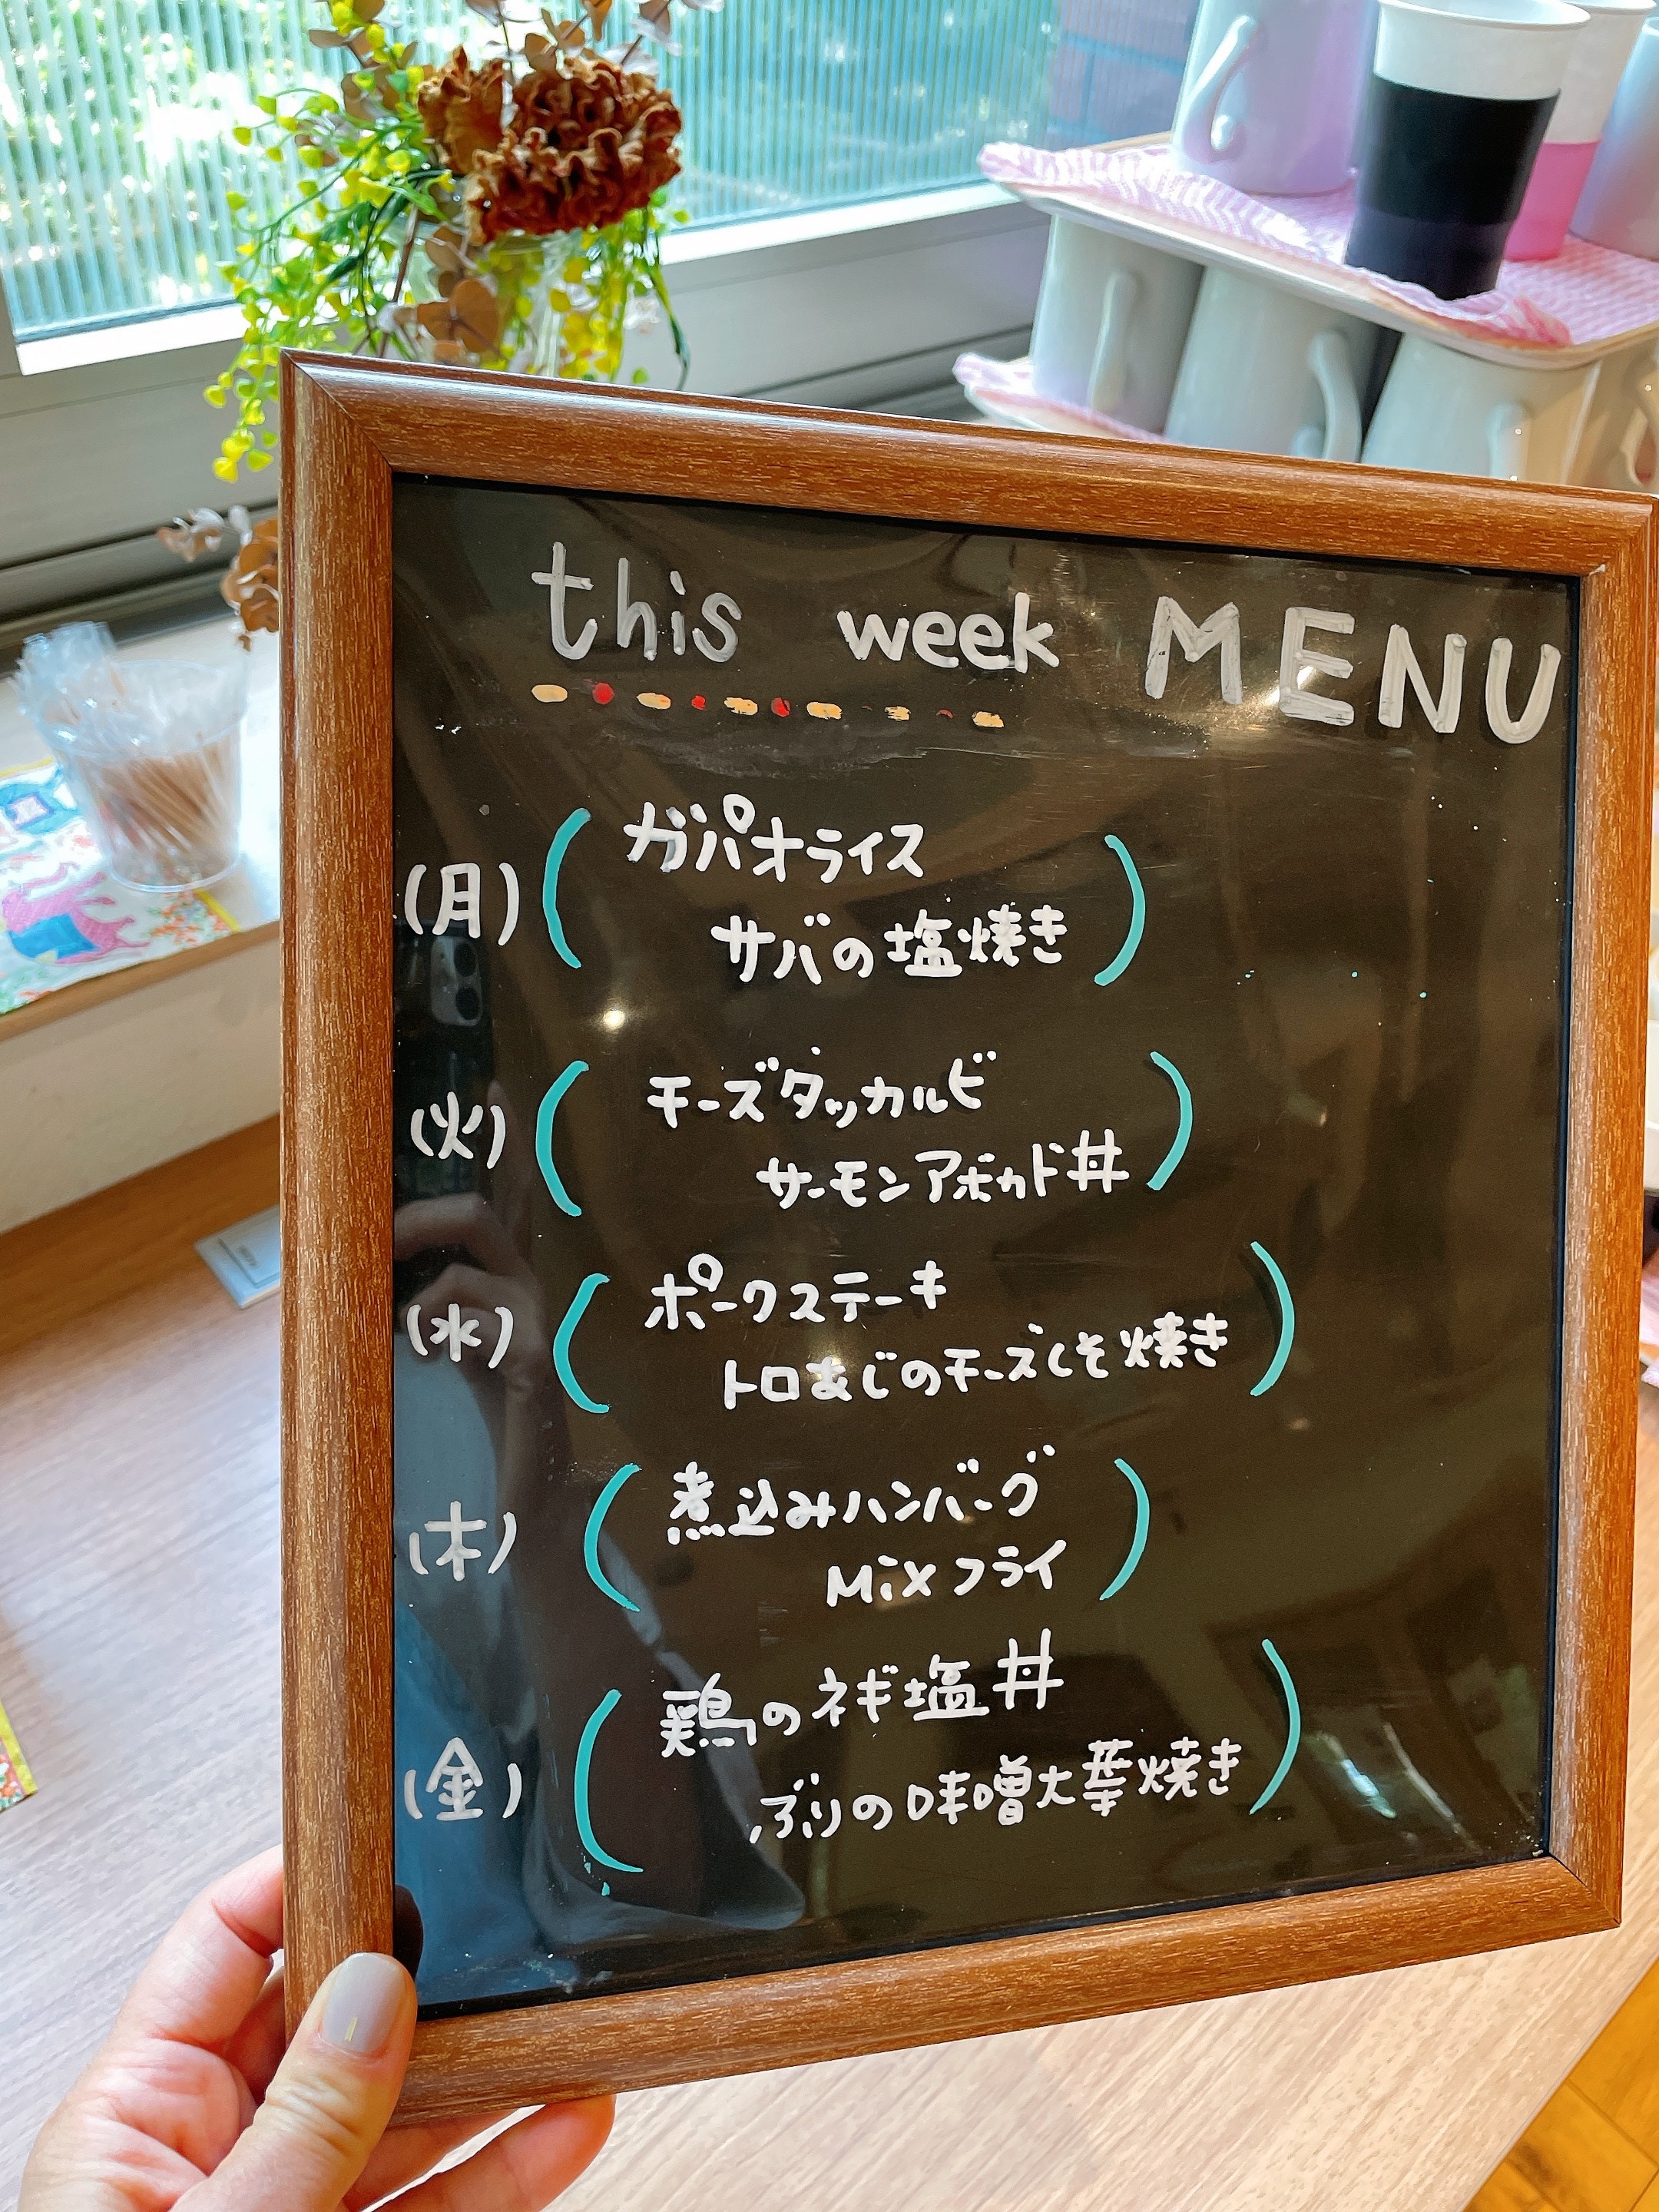 this week MENU
(月) ガパオライス
サバの塩焼き
(火) チーズタッカルビ
サーモンアボカド丼
(水) ポークステーキ
トロあじのチーズしそ焼き
(木) 煮込みハンバーグ
Mixフライ
(金) 鶏のネギ塩丼
ぶりの味噌大葉焼き